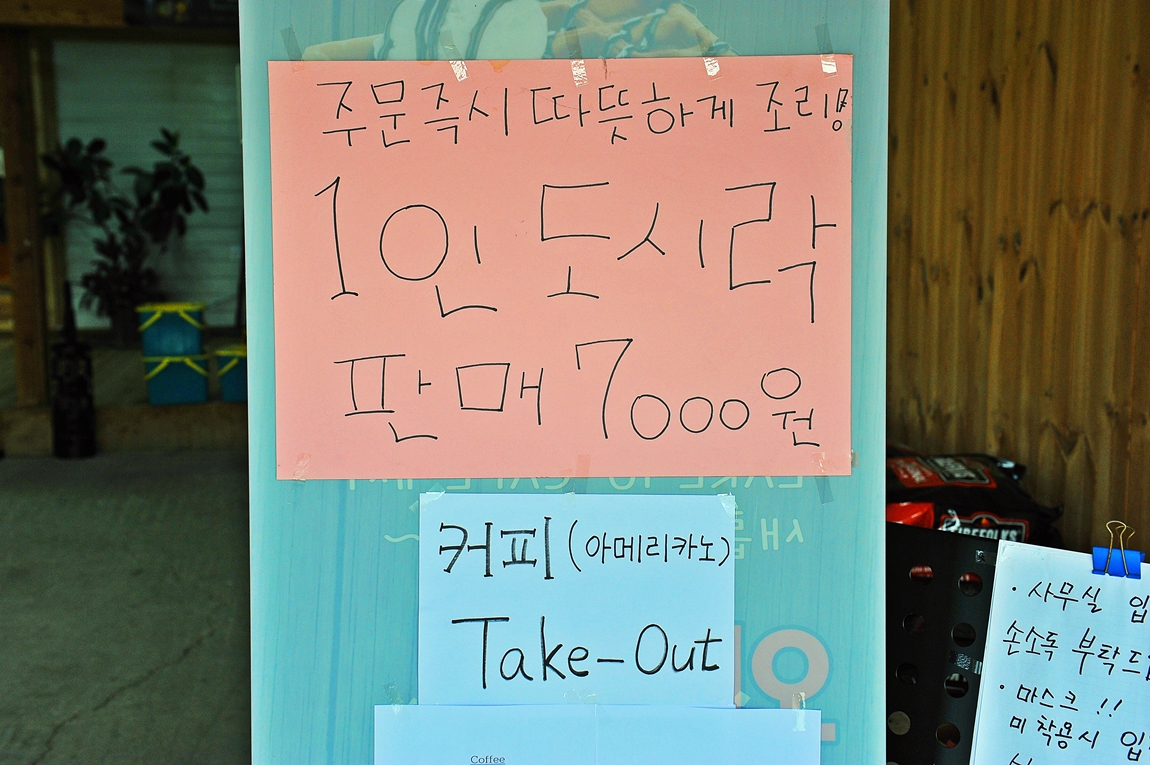 주문즉시 따뜻하게 조리!
1인 도시락
판매 7000원
커피 (아메리카노)
Take-Out
Coffee
· 사무실 입
손소독 부탁드
· 마스크 !!
미착용시 입